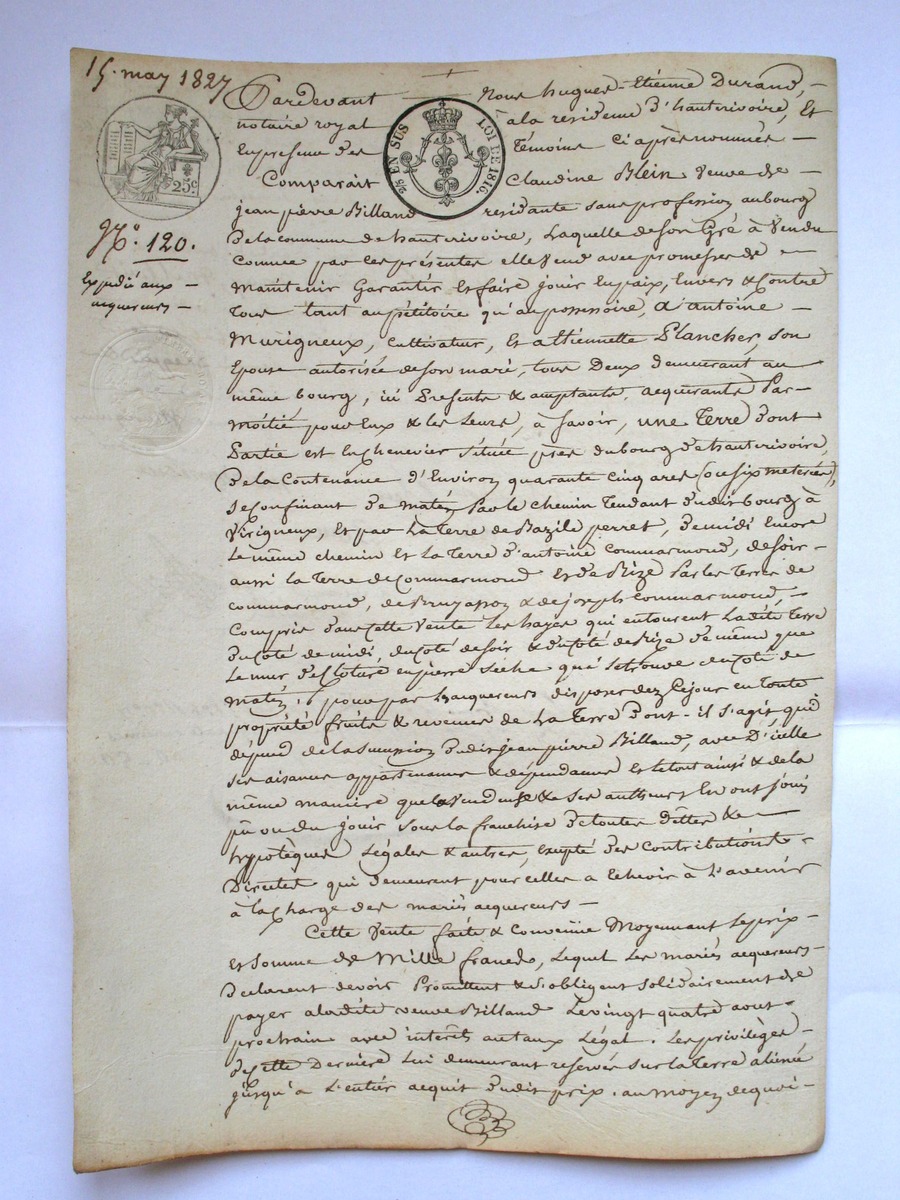 15. may 1827
25c
2/5 EN SUS LOI DE 1816.
N.º 120.
Expedié aux
acquereurs
Pardevant Nous hugues Etienne Durand,
notaire royal à la residence d'hauterivoire, Et
En presence des Témoins Ci après nommés
Comparait Claudine Blein veuve de
jean pierre Billand residante sans profession au bourg
de la commune de hauterivoire, Laquelle de son Gré à Vendu
comme par les présentes elle Vend avec promesses de
Maintenir Garantir Et faire jouir En paix, Envers & Contre
Tous tant au pétitoire qu'au possessoire, a antoine
Murigneux, Cultivateur, Et a Etiennette Plancher, son
Epouse autorisée de son mari, tous Deux demeurant au
même bourg, ici Presents & acceptants, acquerants Par
Moitié pour Eux & les Leurs, à Savoir, une Terre Dont
Partie est En Chenevier Située près du bourg d'hauterivoire,
De la Contenance d'Environ quarante Cinq ares (ou six meterées),
Se Confinant De matin Par le chemin Tendant dudit bourg à
Virigneux, Et par La Terre de Bazile perret, De midi Encore
Le même chemin Et La Terre d'antoine Commarmond, de soir
aussi la Terre de Commarmond Et de Bize Par les Terres de
Commarmond, de & de joseph Commarmond,
Compris dans cette Vente Les hayes qui entourent Ladite Terre
du Coté de midi, du Coté de soir & du Coté de Bize De même que
Le mur de Cloture en pierre Sèche qui se trouve du Coté de
matin, pour par Les acquereurs disposer dez Cejour en toute
propriété fruits & revenus de La Terre Dont il s'agit qui
dépend de la Succession dudit jean pierre Billand, avec D'icelle
Ses aisances appartenances & dépendances Et le tout ainsi & de la
même manière que la Vendeuse & Ses autheurs En ont joui
pu ou du jouir Sous la franchise De toutes Dettes &
hypotèques Légales & autres, Exepté Des Contributions
Directes qui demeurent pour celles a Echeoir à L'avenir
à la Charge des mariés acquereurs
Cette Vente faite & Convenüe Moyennant Le prix
Et Somme de Mille francs, Lequel Les mariés acquereurs
Declarent devoir Promettent & s'obligent Solidairement de
payer a ladite veuve Billand Le vingt quatre aout
prochain avec interêts au taux Légal. Les privilèges
De cette Dernière Lui demeurant reservés Sur la Terre aliénée
jusqu'a L'entier acquit dudit prix. au moyen de quoi